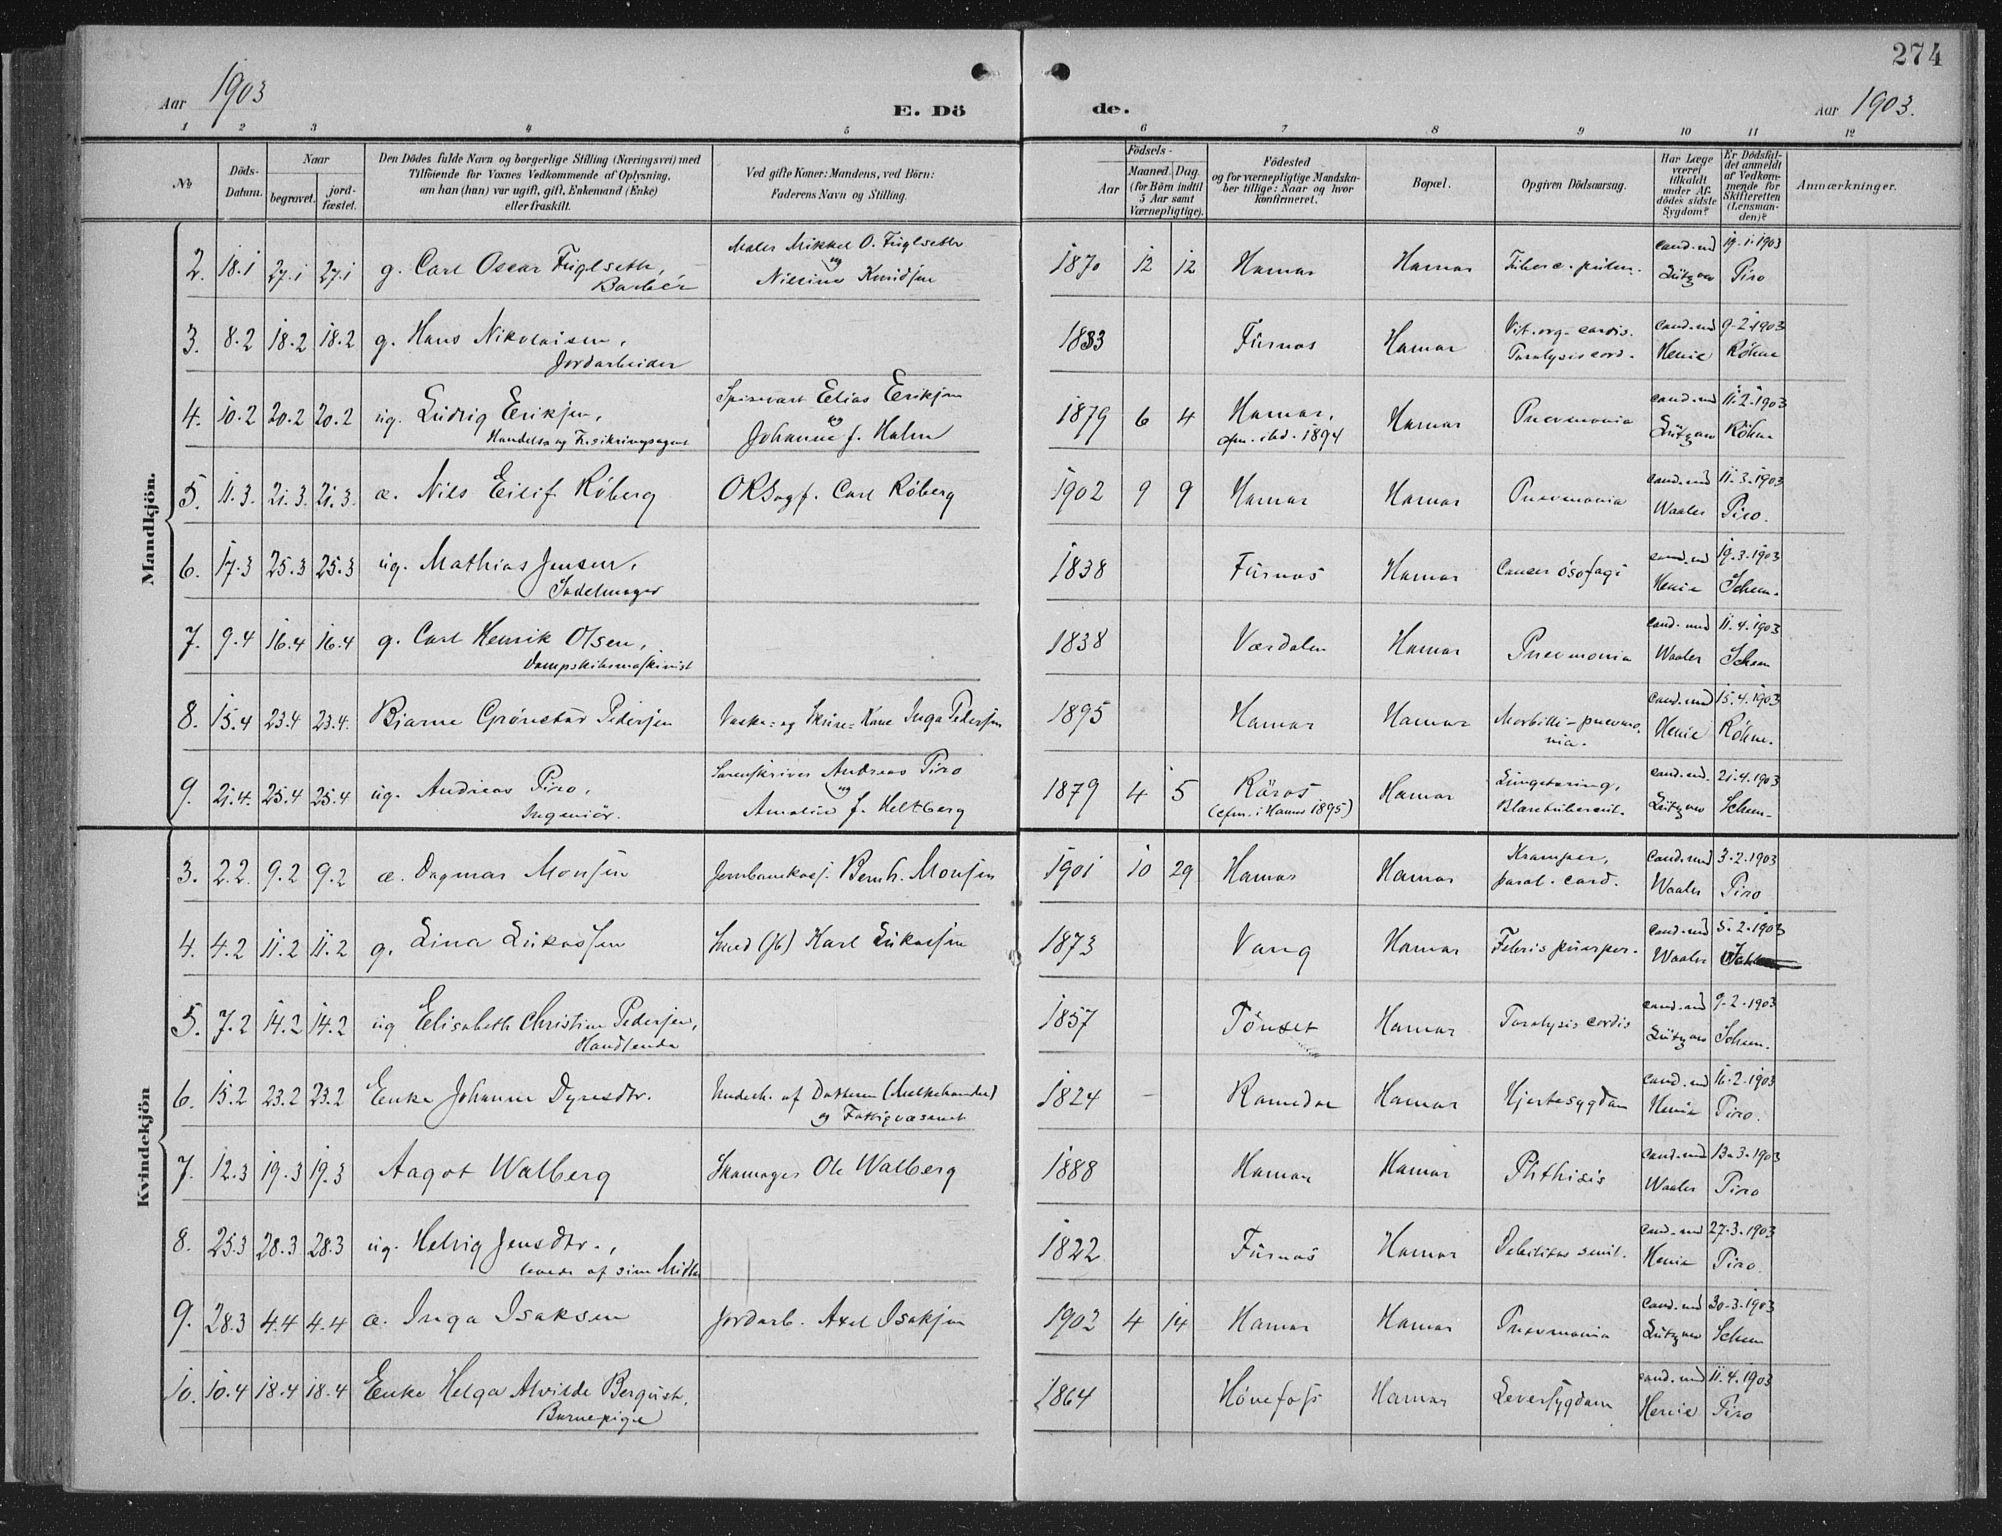 274
Aar 1903
E. Dö
de.
Aar 1903.
1 2 3 4 5 6 7 8 9 10 11 12
No
Döds-Datum.
Naar
begravet.
jord-fæstet.
Den Dödes fulde Navn og borgerlige Stilling (Næringsvei) med
Tilföiende for Voxnes Vedkommende af Oplysning,
om han (hun) var ugift, gift, Enkemand (Enke)
eller fraskilt.
Ved gifte Koner: Mandens, ved Börn:
Faderens Navn og Stilling.
Födsels-
Aar
Maaned. Dag.
(for Börn indtil
5 Aar samt
Værnepligtige).
Födested
og for værnepligtige Mandska-
ber tillige: Naar og hvor
konfirmeret.
Bopæl.
Opgiven Dödsaarsag.
Har Læge
været
tilkaldt
under Af-
dödes sidste
Sygdom?
Er Dödsfal-
det anmeldt
af Vedkom-
mende for
Skifteretten
(Lensman-
den)?
Anmærkninger.
Mandkjön.
2. 18.1 27.1 27.1 g. Carl Oscar Fuglseth, Barber Maler Mikkel O. Fuglseth og Nilsine Knudsen 1870 12 12 Hamar Hamar Tuberc. pulm. cand. med Lützow 19.1.1903 Piro
3. 8.2 18.2 18.2 g. Hans Nikolaisen, Jordarbeider 1833 Furnæs Hamar Vit. org. cordis. Paralysis cord. cand. med Henie 9.2.1903 Röhne
4. 10.2 20.2 20.2 ug. Ludvig Eriksen, Handels og Fors​ikringsagent Spisevært Elias Eriksen og Johanne f. Holm 1879 6 4 Hamar, cfm. ibd. 1894 Hamar Pnevmonia cand. med Lützow 11.2.1903 Röhne
5. 11.3. 21.3. 21.3. æ. Nils Eilif Röberg ORSagf. Carl Röberg 1902 9 9 Hamar Hamar Pnevmonia cand. med Waaler 11.3.1903 Piro.
6. 17.3 25.3 25.3 ug. Mathias Jensen, Sadelmager 1838 Furnæs Hamar Cancer ösofagi cand. med Henie 19.3.1903 Scheen.
7. 9.4 16.4 16.4 g. Carl Henrik Olsen, Dampskibsmaskinist 1838 Værdalen Hamar Pnevmonia cand. med Waaler 11.4.1903 Scheen
8. 15.4 23.4 23.4. Bjarne Grönstad Pedersen Vaske- og Skure-Kone Inga Pedersen 1895 Hamar Hamar Morbilli-pnevmonia. cand. med Henie 15.4.1903 Röhne.
9. 21.4. 25.4 25.4 ug. Andreas Piro, Ingeniör. Sorenskriver Andreas Piro og Amalie f. Heltberg 1879 4 5 Röros (cfm. i Hamar 1895) Hamar Lungetæring, Blæretuberkul. cand. med. Lützow 21.4.1903 Scheen-
Kvindekjön
3. 2.2. 9.2 9.2 æ. Dagmar Monsen Jernbanekasj. Bernh. Monsen 1901 10 29 Hamar Hamar Kramper, paral. card. Cand. med Waaler 3.2.1903 Piro
4. 4.2 11.2 11.2 g. Lina Lukassen Smed (Jb) Karl Lukassen 1873 Vang Hamar Febris puerper. Cand. med Waaler 5.2.1903
5. 7.2 14.2 14.2 ug Elisabeth Christine Pedersen, Handlende 1857 Tönset Hamar Paralysis cordis cand. med Lützow 9.2.1903 Scheen.
6. 15.2 23.2 23.2 Enke Johanne Dyresdtr. Underh. af Datteren (Melkehandler) og Fattigvæsenet 1824 - Romedal Hamar Hjertesygdom Cand. med Henie 16.2.1903 Piro.
7. 12.3 19.3 19.3 Aagot Walberg Skomager Ole Walberg 1888 Hamar Hamar Phthisis cand. med Waaler 13.3.1903 Piro
8. 25.3 28.3 28.3 ug. Helvig Jensdtr., levede af sine Midler 1822 Furnæs Hamar Debilitas senil. Cand. med Henie 27.3.1903 Piro.
9. 28.3 4.4 4.4 æ. Inga Isaksen Jordarb. Axel Isaksen 1902 4 14 Hamar Hamar Pnevmonia Cand. med Lützow 30.3.1903 Scheen
10. 10.4 18.4 18.4 Enke Helga Alvilde Bergust, Barnepige 1864 Hönefoss Hamar Leversygdom cand. med Henie 11.4.1903 Piro